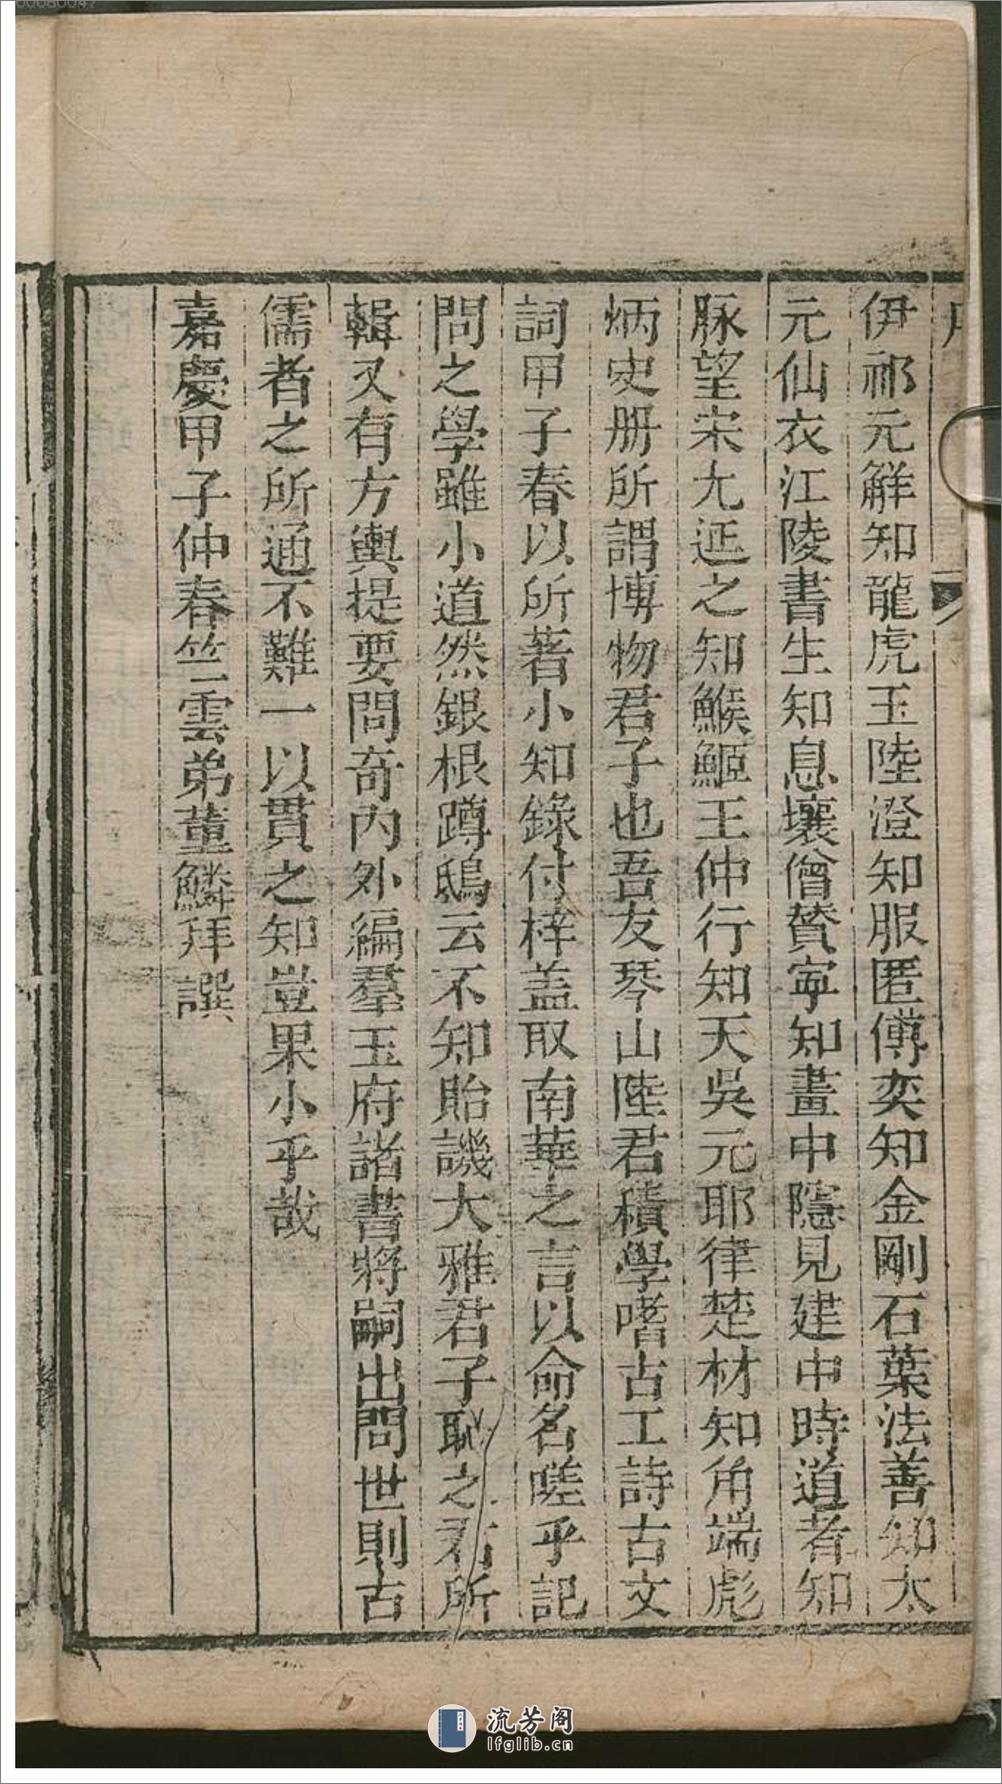 伊祁元解知龍虎玉陸澄知服匿傅奕知金剛石葉法善知太
元仙衣江陵書生知息壤僧贊寧知畫中隱見建中時道者知
脉望宋尤延之知鯸䱌王仲行知天吳元耶律楚材知角端彪
炳史册所謂博物君子也吾友琴山陸君積學嗜古工詩古文
詞甲子春以所著小知錄付梓盖取南華之言以命名嗟乎記
問之學雖小道然銀根蹲鴟云不知貽譏大雅君子恥之君所
輯又有方輿提要問奇內外編羣玉府諸書將嗣出問世則古
儒者之所通不難一以貫之知豈果小乎哉
嘉慶甲子仲春竺雲弟董鱗拜譔
流芳阁
lfglib.cn